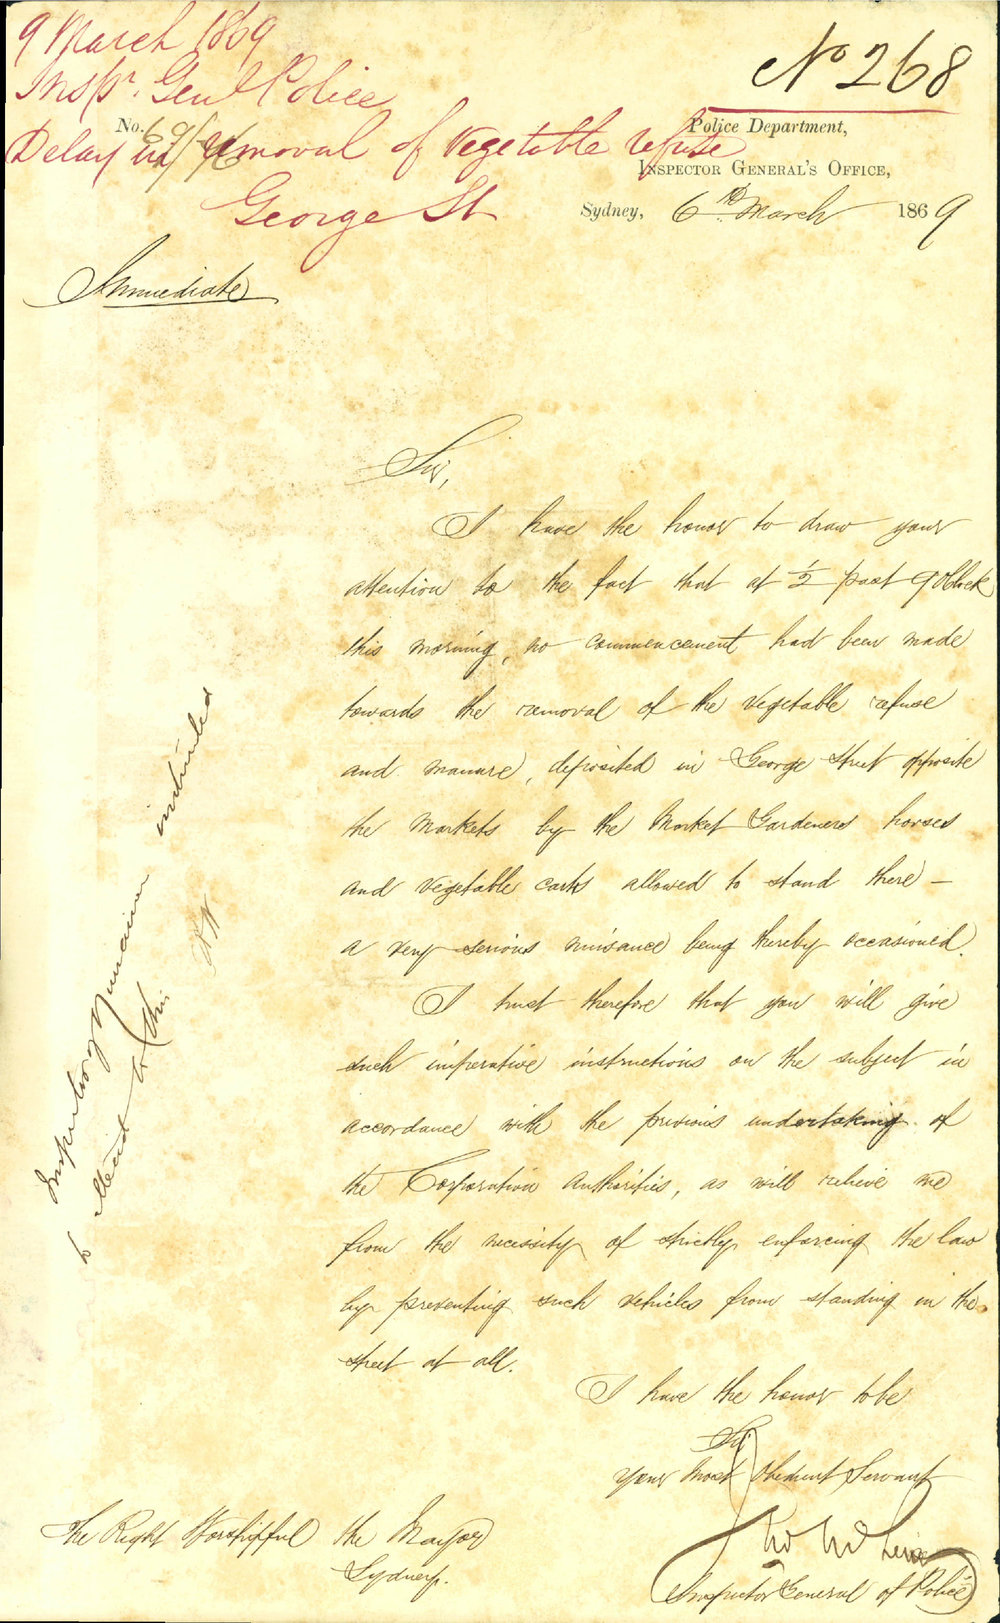 9 March 1869
Inspr. Genl Police
Delay in removal of vegetable refuse
George St
No 268
No. 69/
Police Department,
Inspector General's Office,
Sydney, 6th March 1869
Immediate
Sir,
I have the honor to draw your
attention to the fact that at ½ past 9 O'Clock
this morning, no commencement had been made
towards the removal of the vegetable refuse
and manure, deposited in George Street opposite
the Markets by the Market Gardeners horses
and vegetable carts allowed to stand there –
a very serious nuisance being thereby occasioned.
I trust therefore that you will give
such imperative instructions on the subject in
accordance with the previous undertaking of
the Corporation Authorities, as will relieve me
from the necessity of strictly enforcing the law
by preventing such vehicles from standing in the
street at all.
I have the honor to be
Sir
Your Most Obedient Servant
Inspector General of Police
The Right Worshipful the Mayor
Sydney.
Inspector of Nuisances instructed
to attend to this